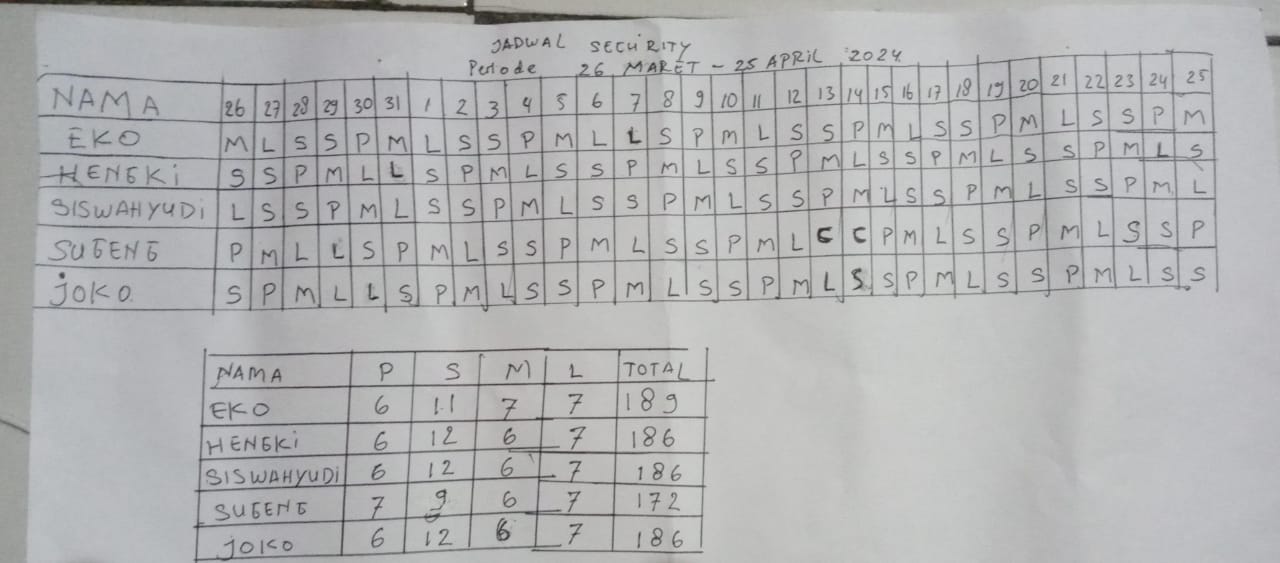 JADWAL SECURITY
Periode 26 MARET - 25 APRIL 2024
NAMA 26 27 28 29 30 31 1 2 3 4 5 6 7 8 9 10 11 12 13 14 15 16 17 18 19 20 21 22 23 24 25
EKO M L S S P M L S S P M L L S P M L S S P M L S S P M L S S P M
HENGKI S S P M L L S P M L S S P M L S S P M L S S P M L S S P M L S
SISWAHYUDI L S S P M L S S P M L S S P M L S S P M L S S P M L S S P M L
SUGENG P M L L S P M L S S P M L S S P M L C C P M L S S P M L S S P
JOKO S P M L L S P M L S S P M L S S P M L S S P M L S S P M L S S
NAMA P S M L TOTAL
EKO 6 11 7 7 189
HENGKI 6 12 6 7 186
SISWAHYUDI 6 12 6 7 186
SUGENG 7 9 6 7 172
JOKO 6 12 6 7 186